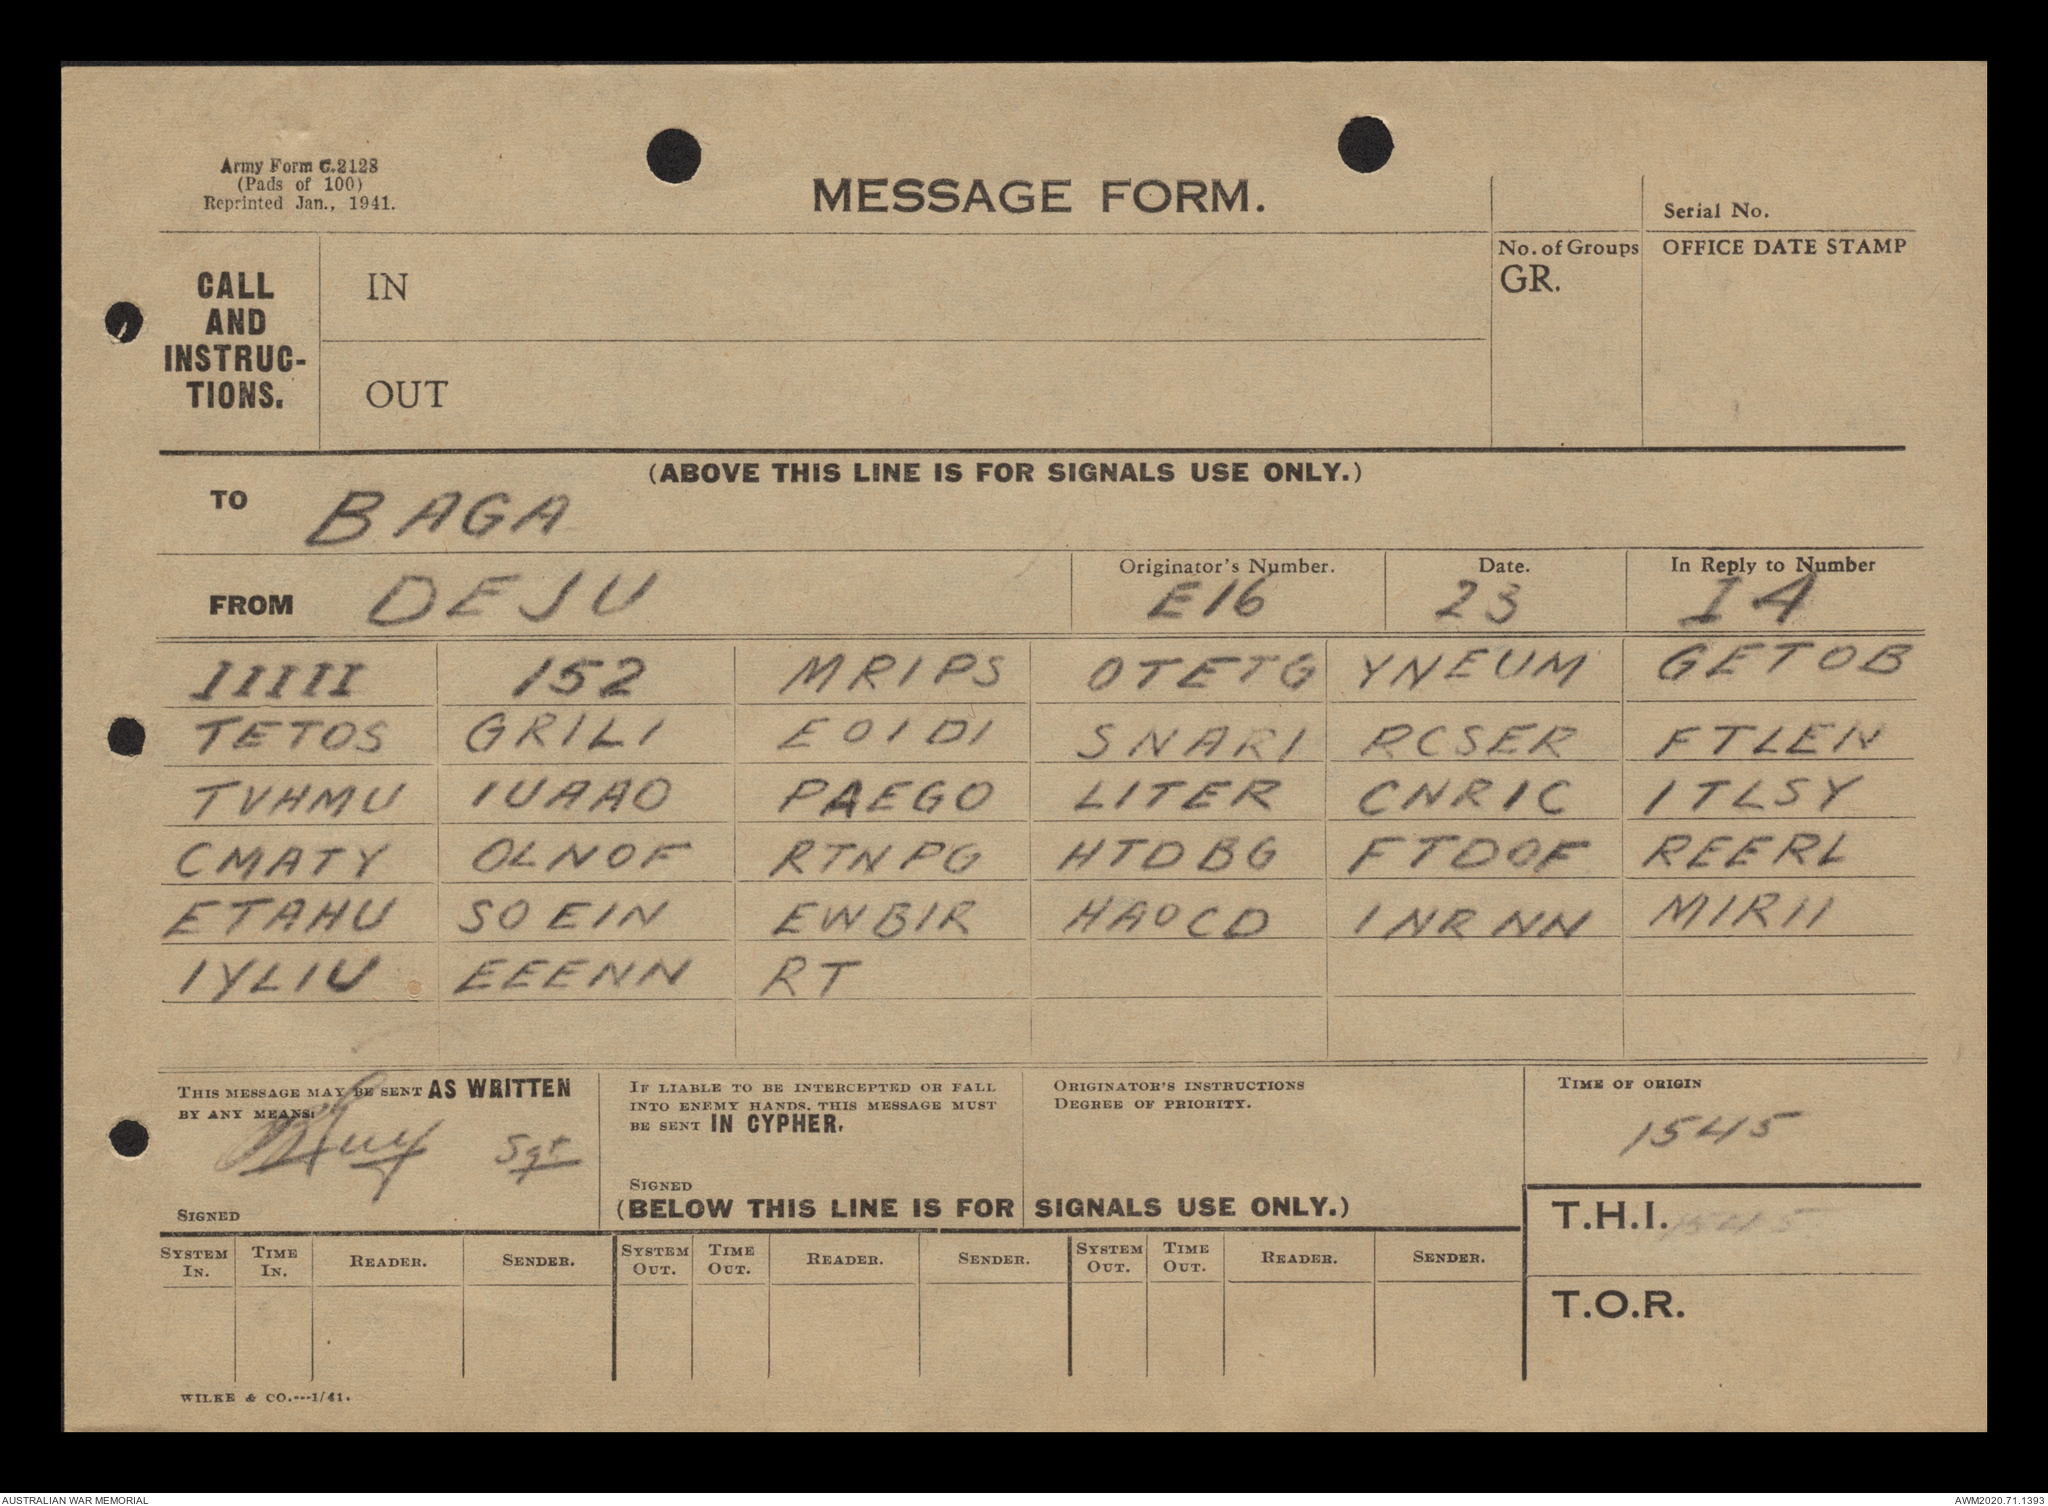 Army Form C.2128
(Pads of 100)
Reprinted Jan., 1941.
MESSAGE FORM.
Serial No.
CALL AND INSTRUC-TIONS.
IN
No. of Groups
GR.
OFFICE DATE STAMP
OUT
(ABOVE THIS LINE IS FOR SIGNALS USE ONLY.)
TO BAGA
FROM DEJU
Originator's Number. E16
Date. 23
In Reply to Number I4
IIIII 152 MRIPS OTETG YNEUM GETOB
TETOS GRILI EOIDI SNARI RCSER FTLEN
TVHMU IUAAO PAEGO LITER CNRIC ITLSY
CMATY OLNOF RTNPG HTDBG FTDOF REERL
ETAHU SOEIN EWBIR HAOCD INRNN MIRII
IYLIU EEENN RT
THIS MESSAGE MAY BE SENT AS WRITTEN
BY ANY MEANS:
Sgt
SIGNED
IF LIABLE TO BE INTERCEPTED OR FALL
INTO ENEMY HANDS, THIS MESSAGE MUST
BE SENT IN CYPHER.
SIGNED
ORIGINATOR'S INSTRUCTIONS
DEGREE OF PRIORITY.
TIME OF ORIGIN
1545
(BELOW THIS LINE IS FOR SIGNALS USE ONLY.)
T.H.I. 1545
SYSTEM IN. TIME IN. READER. SENDER. SYSTEM OUT. TIME OUT. READER. SENDER. SYSTEM OUT. TIME OUT. READER. SENDER.
T.O.R.
WILKE & CO.---1/41.
AUSTRALIAN WAR MEMORIAL
AWM2020.71.1393